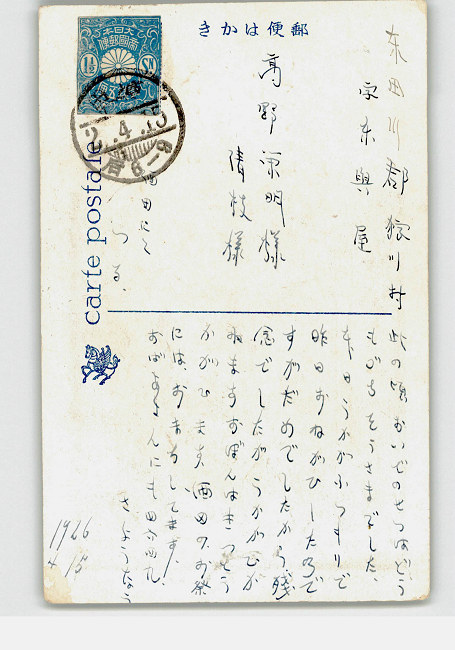 郵便はかき
1½ SN
carte postale
東田川郡狩川村
字東興屋
高野栄明様
清枝様
酒田
つる
此の頃おいでのせつはどう
もごちそうさまでした、
本日うかがふつもりで
昨日おねがひしたので
すがだめでしたから残
念でしたがうかがひか
ねますおぼんはきつとう
かがひます酒田のお祭
にはおまちしてます、
おばあさんにも
さようなら
1926
4 15